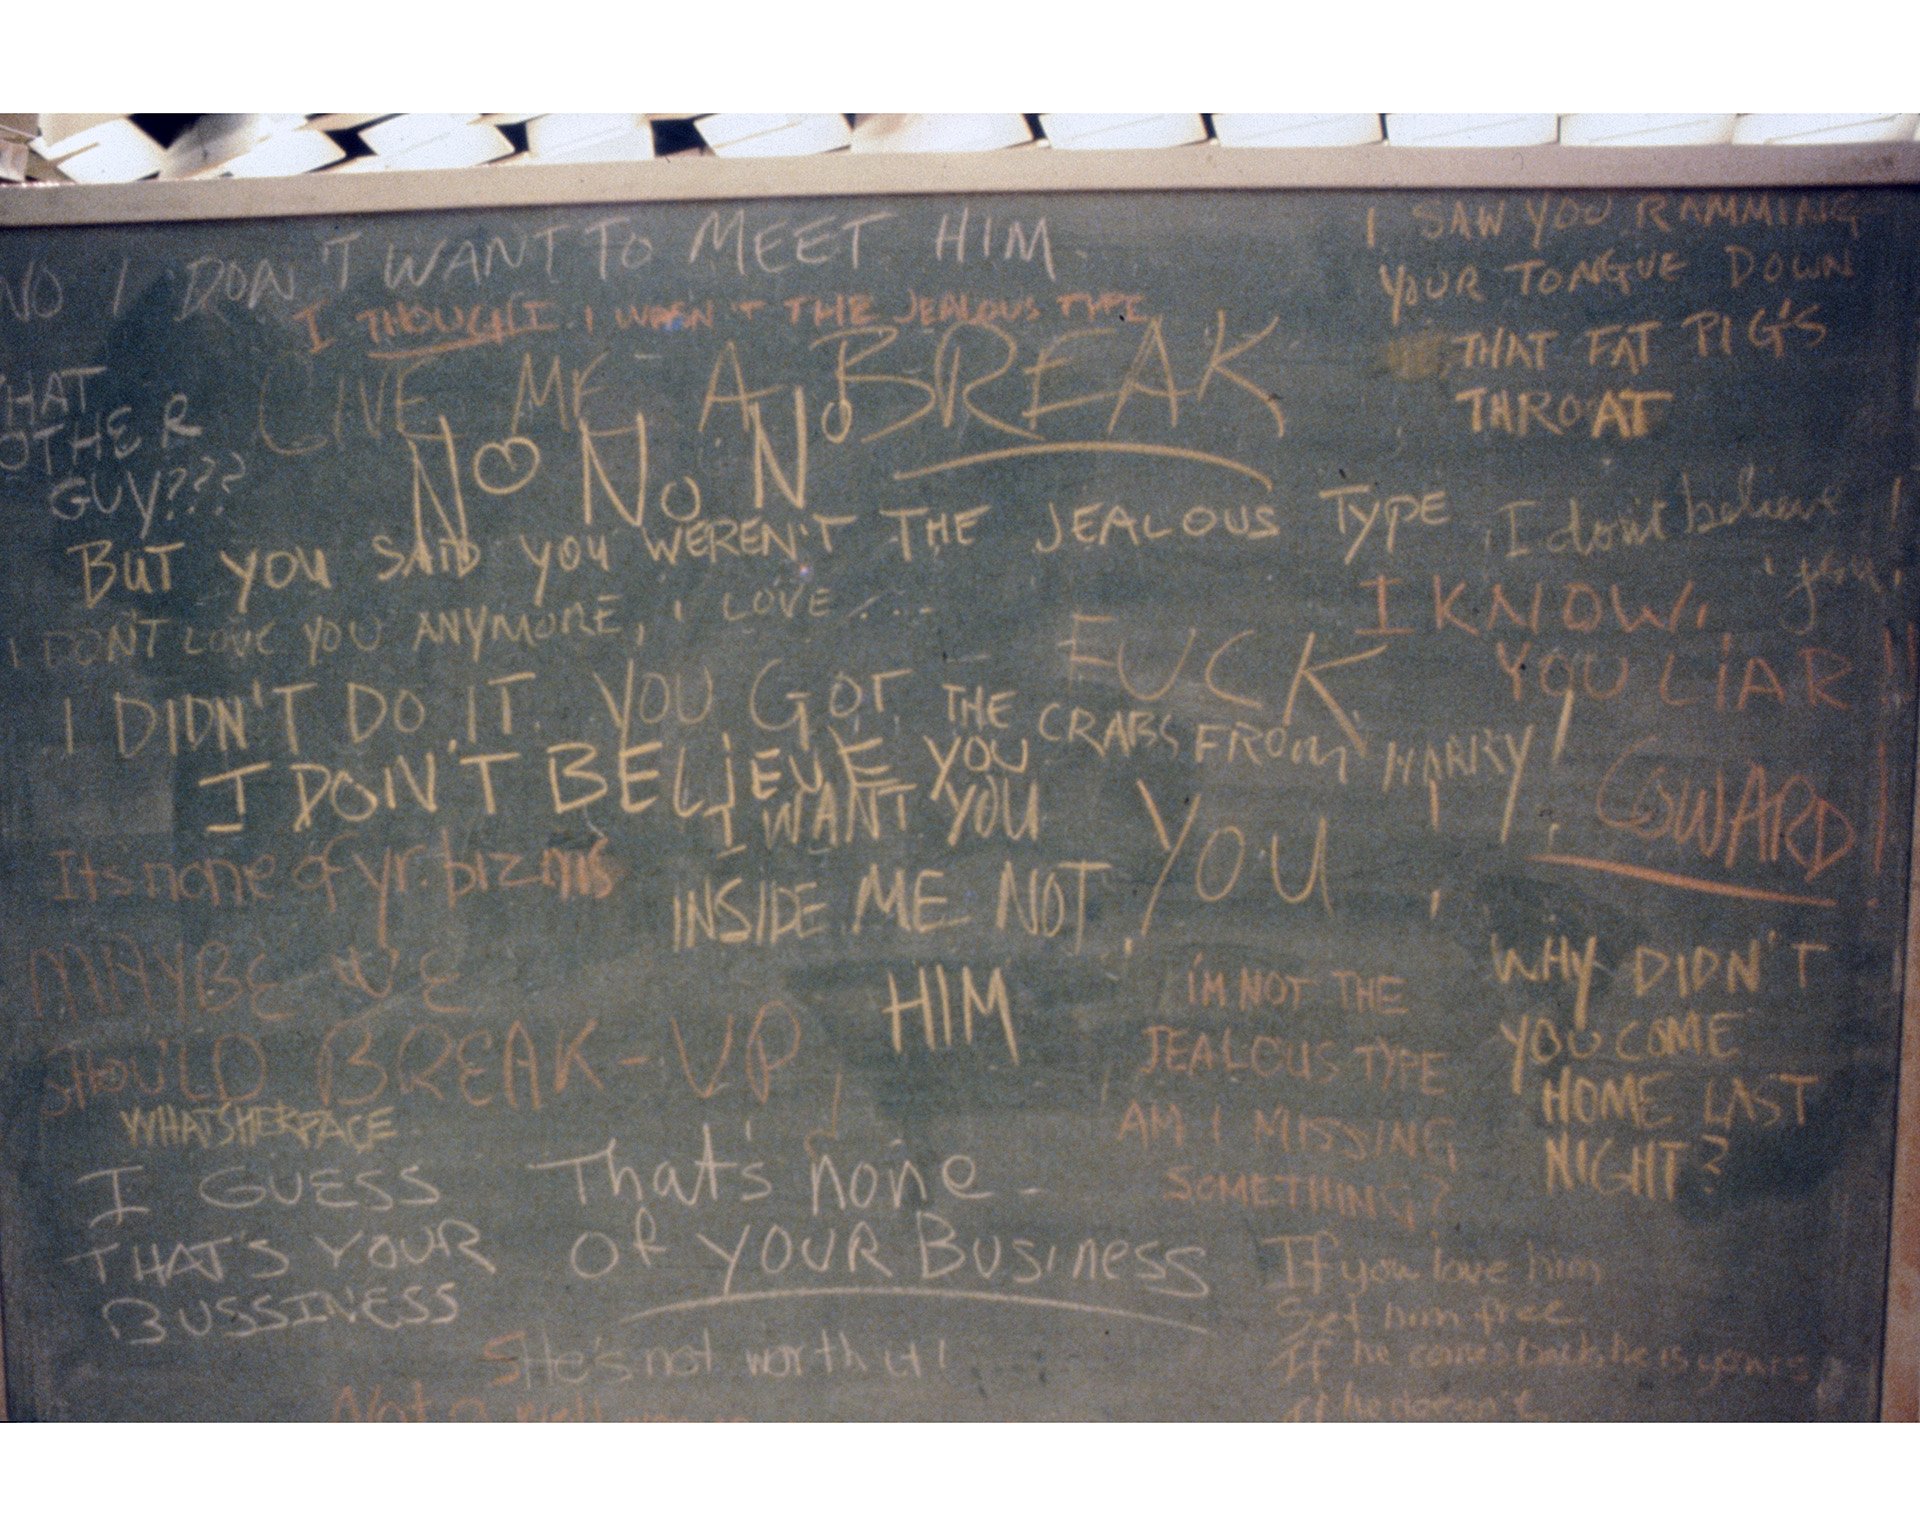 NO I DON'T WANT TO MEET HIM.
I THOUGHT I WASN'T THE JEALOUS TYPE
I SAW YOU RAMMING
YOUR TONGUE DOWN
THAT FAT PIG'S
THROAT
GIVE ME A BREAK
HAT
OTHER
GUY???
NO NO NO
BUT YOU SAID YOU WEREN'T THE JEALOUS TYPE
I don't believe
you!
I DON'T LOVE YOU ANYMORE, I LOVE ....
I KNOW.
YOU LIAR!!
COWARD!
FUCK
YOU
I DIDN'T DO IT. YOU GOT THE CRABS FROM HARRY!
I DON'T BELIEVE YOU
I WANT YOU
INSIDE ME NOT
HIM
Its none of yr. bizness
MAYBE WE
SHOULD BREAK-UP
WHATSHERFACE
I GUESS
THAT'S YOUR
BUSSINESS
That's none
OF YOUR BUSINESS
I'M NOT THE
JEALOUS TYPE
AM I MISSING
SOMETHING?
WHY DIDN'T
YOU COME
HOME LAST
NIGHT?
If you love him
Set him free
If he comes back, he is yours
if he doesn't
SHe's not worth it!
Not a